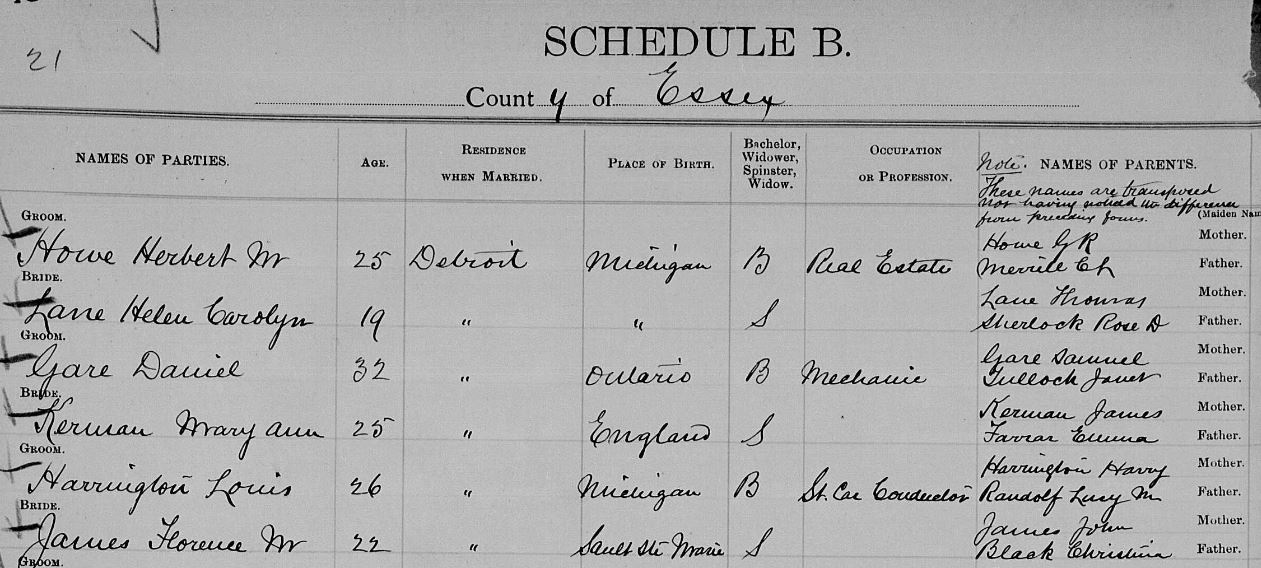 21
SCHEDULE B.
County of Essex
NAMES OF PARTIES.
AGE.
RESIDENCE
WHEN MARRIED.
PLACE OF BIRTH.
Bachelor,
Widower,
Spinster,
Widow.
OCCUPATION
OR PROFESSION.
Note. NAMES OF PARENTS.
These names are transposed
not having noticed the difference
from preceding forms.
(Maiden Nam
GROOM.
Howe Herbert M 25 Detroit Michigan B Real Estate
Howe G R Mother.
Merrill Father.
BRIDE.
Lane Helen Carolyn 19 " " S
Lane Thomas Mother.
Sherlock Rose D Father.
GROOM.
Gare Daniel 32 " Ontario B Mechanic
Gare Samuel Mother.
Tullock Janet Father.
BRIDE.
Kerman Mary Ann 25 " England S
Kerman James Mother.
Farrar Emma Father.
GROOM.
Harrington Louis 26 " Michigan B St. Car Conductor
Harrington Harry Mother.
Randolf Lucy M Father.
BRIDE.
James Florence M 22 " Sault Ste Marie S
James John Mother.
Black Christina Father.
GROOM.